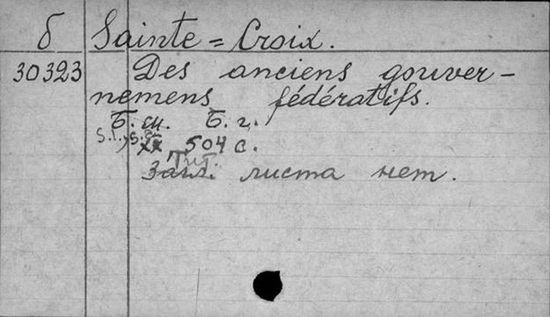 б Sainte=Croix.
30323 Des anciens gouver-
nemens fédératifs.
Б. м. Б. г.
s.l., s.a.
504 с.
Тит.
Загл. листа нет.